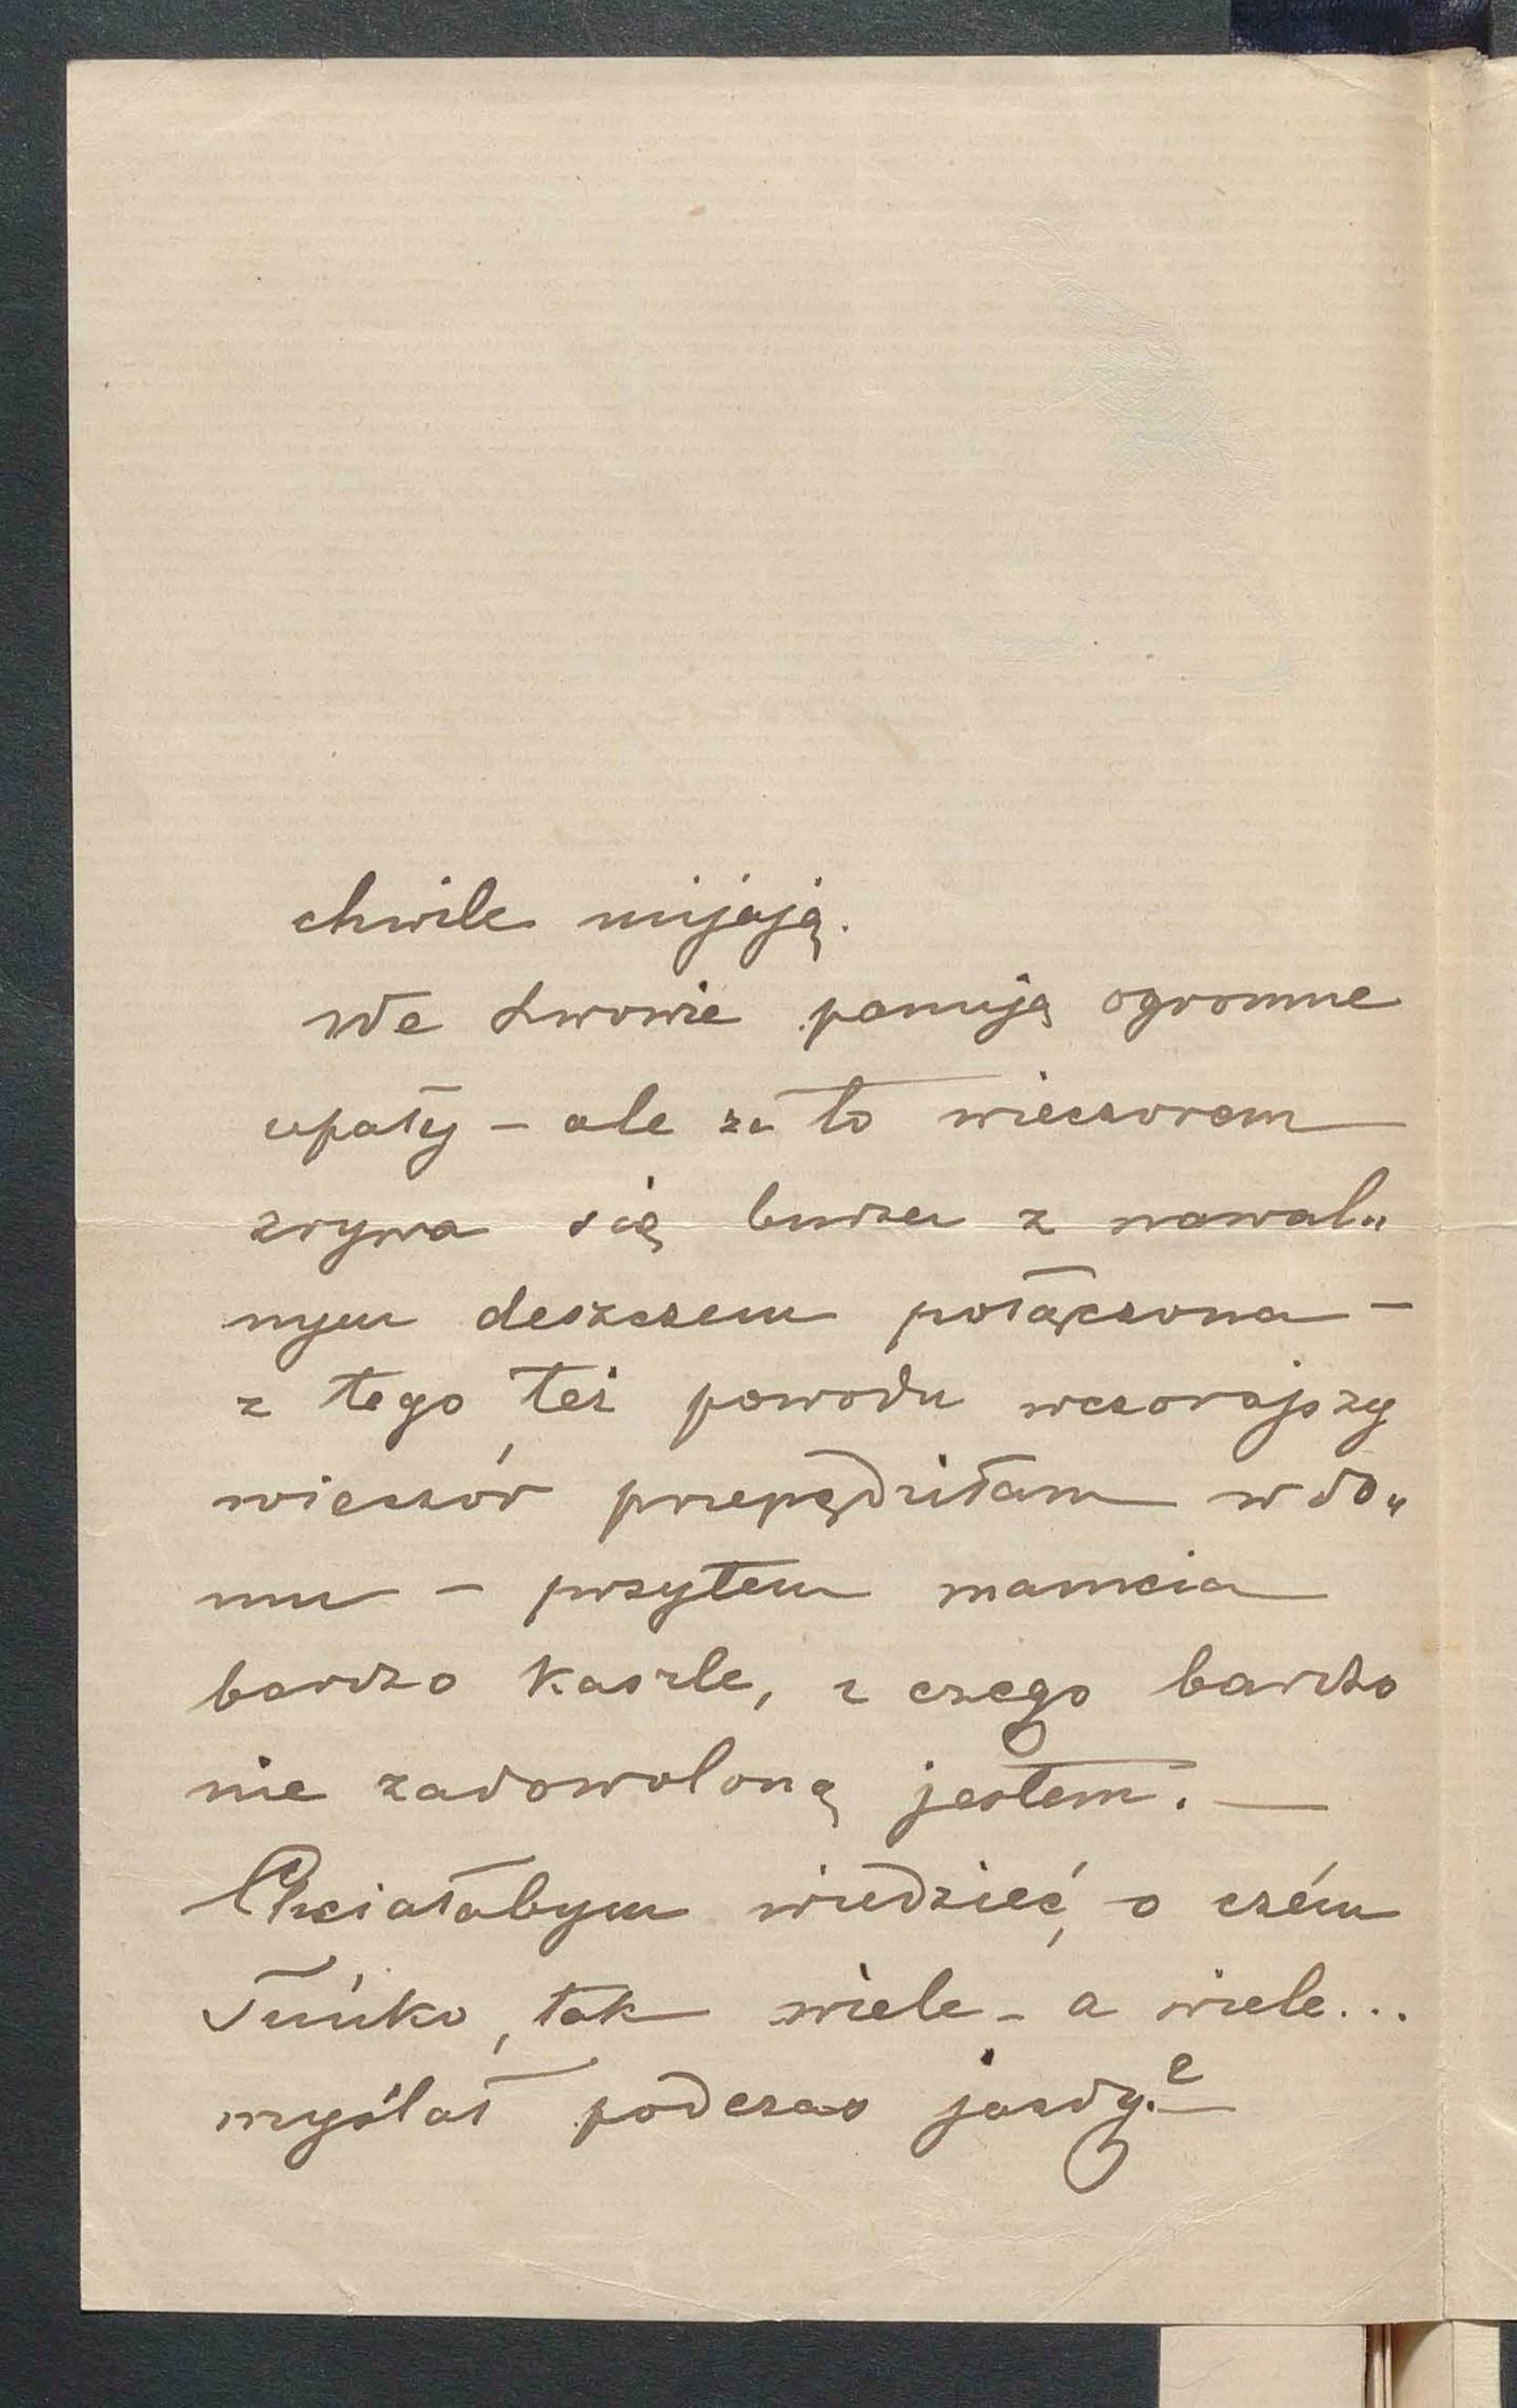 chwile mijają.
We Lwowie panują ogromne
upały – ale za to wieczorem
zrywa się burza z nawal„
nym deszczem połączona –
z tego też powodu wczorajszy
wieczór przepędziłam w do„
mu – przytem mamcia
bardzo kaszle, z czego bardzo
nie zadowoloną jestem. —
Chciałabym wiedzieć, o czém
Tuńko, tak wiele – a wiele...
myślał podczas jazdy? —